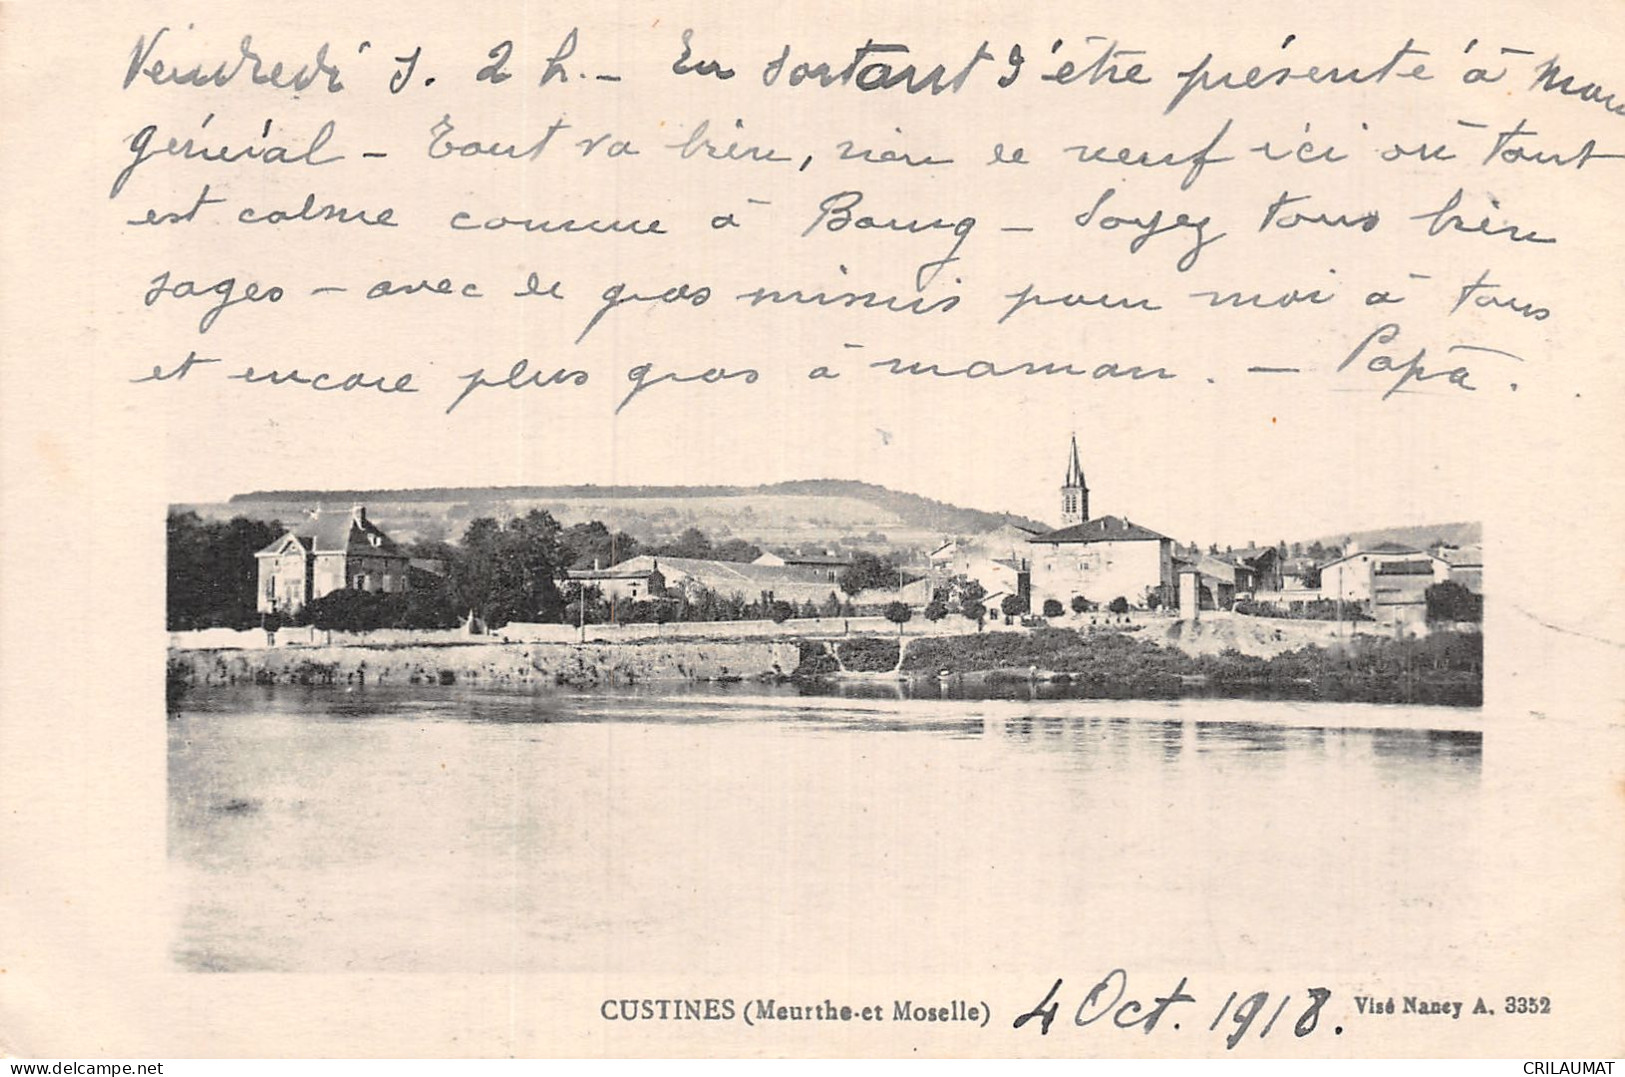 Vendredi s. 2 h. - En sortant d'être présenté à mon
général - Tout va bien, rien de neuf ici où tout
est calme comme à Bourg - Soyez tous bien
sages - avec de gros mimis pour moi à tous
et encore plus gros à maman. - Papa.
CUSTINES (Meurthe-et Moselle) 4 Oct. 1918. Visé Nancy A. 3352
delcampe.net
CRILAUMAT